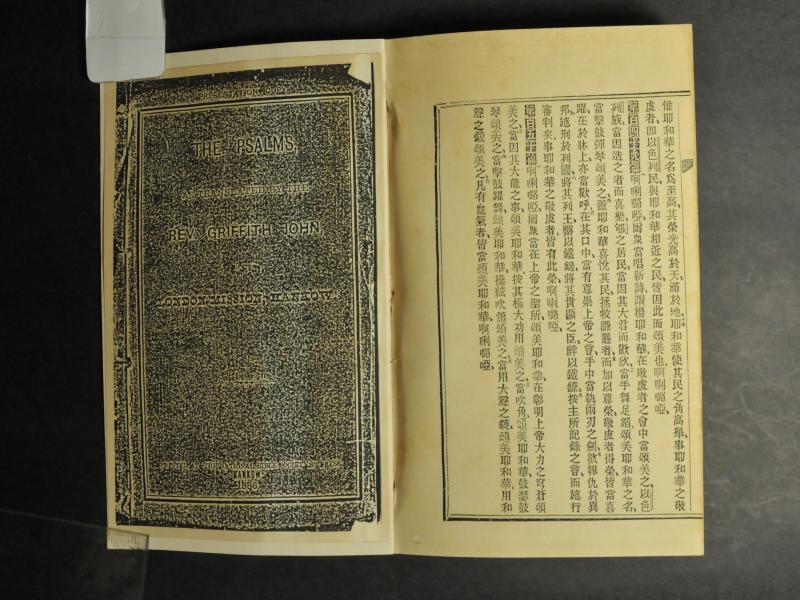 PRESENTATION COPY
THE PSALMS,
REV. GRIFFITH JOHN,
LONDON MISSION, HANKOW
HANKOW
惟耶和華之名爲至高其榮光高於天滿於地耶和華使其民之角高舉事耶和華之敬
虔者卽以色列民與耶和華相近之民皆因此而頌美也啊唎嚕啞
第百四十九篇啊唎嚕啞爾衆當唱新詩讚揚耶和華在敬虔者之會中當頌美之以色
列族當因造之者而喜樂郇之居民當因其大君而歡欣當手舞足蹈頌美耶和華之名
當擊鼓彈琴頌美之蓋耶和華喜悅其民拯救謙遜者而加以尊榮敬虔者得榮皆當喜
躍在於牀上亦當歡呼在其口中當有尊崇上帝之言手中當執兩刃之劍欲報仇於異
邦施刑於列國將其列王繫以鐵鏈將其貴顯之臣絆以鐵鐐按主所記錄之言而施行
審判矣事耶和華之敬虔者皆有此榮啊唎嚕啞
第百五十篇啊唎嚕啞爾衆當在上帝之聖所頌美耶和華在彰明上帝大力之穹蒼頌
美之當因其大能之事頌美耶和華按其極大功用頌美之當吹角頌美耶和華鼓瑟鼓
琴頌美之當擊鼓躍舞頌美耶和華操絃吹簫頌美之當用大聲之鐃頌美耶和華用和
聲之鐃頌美之凡有血氣者皆當頌美耶和華啊唎嚕啞